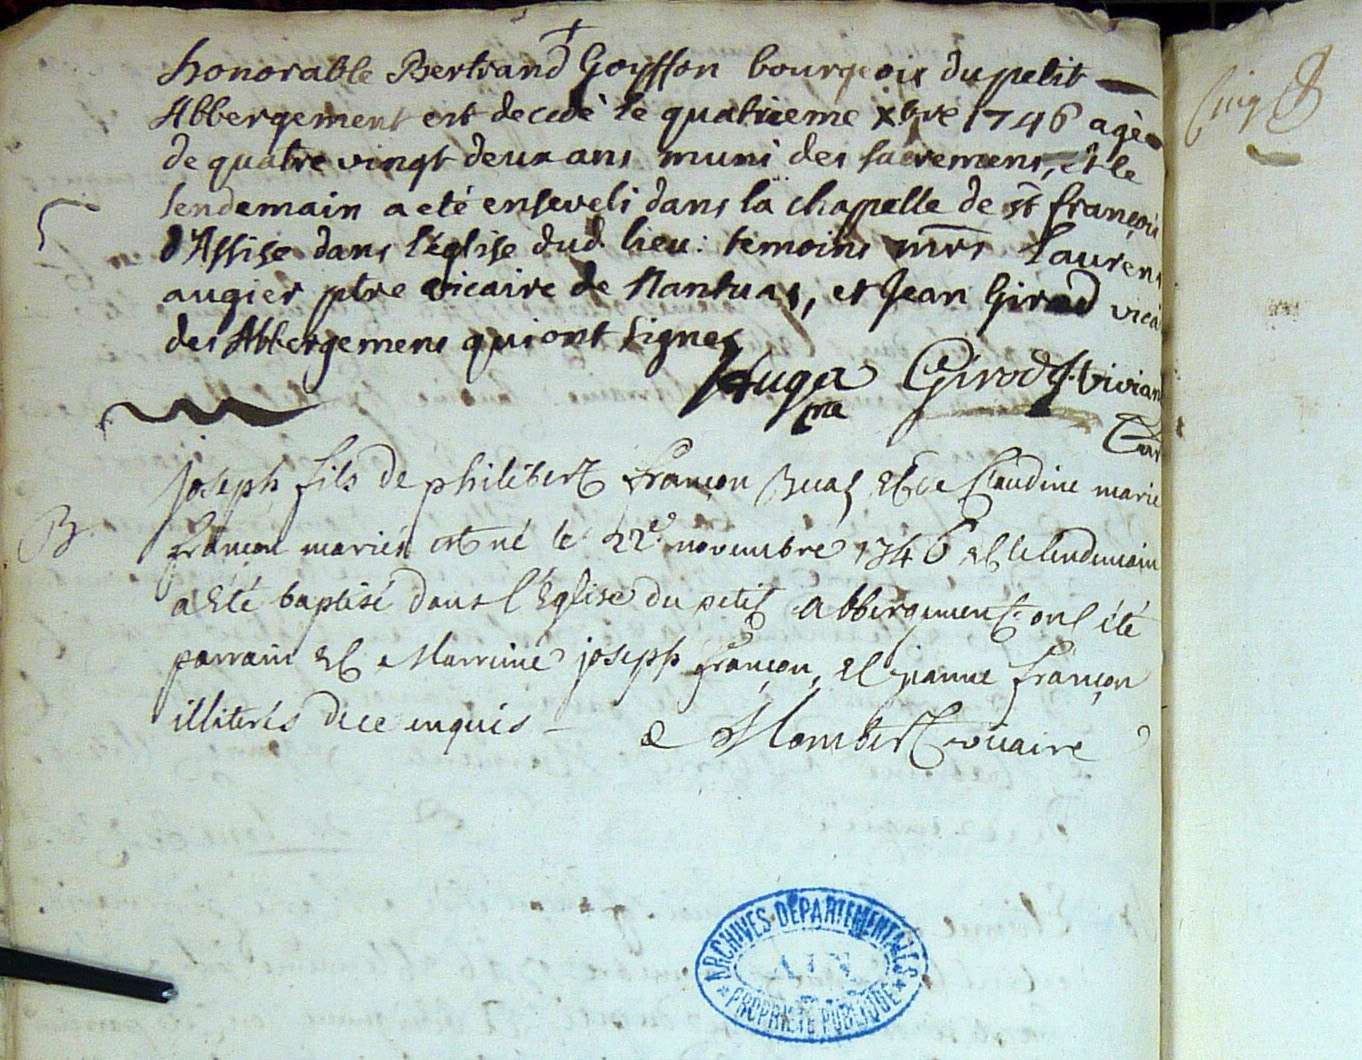 honorable Bertrand Goyffon bourgeois du petit
Abbergement est decedè le quatrieme xbre 1746 agè
de quatre vingt deux ans muni des sacremens, et le
lendemain a eté enseveli dans la chappelle de st françois
d'Assise dans l'église dud. lieu: temoins mrs Laurens
augier ptre vicaire de Nantuas, et Jean Girod vicai
des Abbergemens qui ont signes
Huga Girod J. Vivian
B
joseph fils de philibert françon et de Claudine marie
françon mariés est né le 22e novembre 1746 et le lendemain
a été baptisé dans l'Eglise du petit abbergement. ont été
parrain et Marrine joseph françon, et jeanne françon
illiterés de ce enquis
Mombert vicaire
ARCHIVES DÉPARTEMENTALES
AIN
PROPRIÉTÉ PUBLIQUE